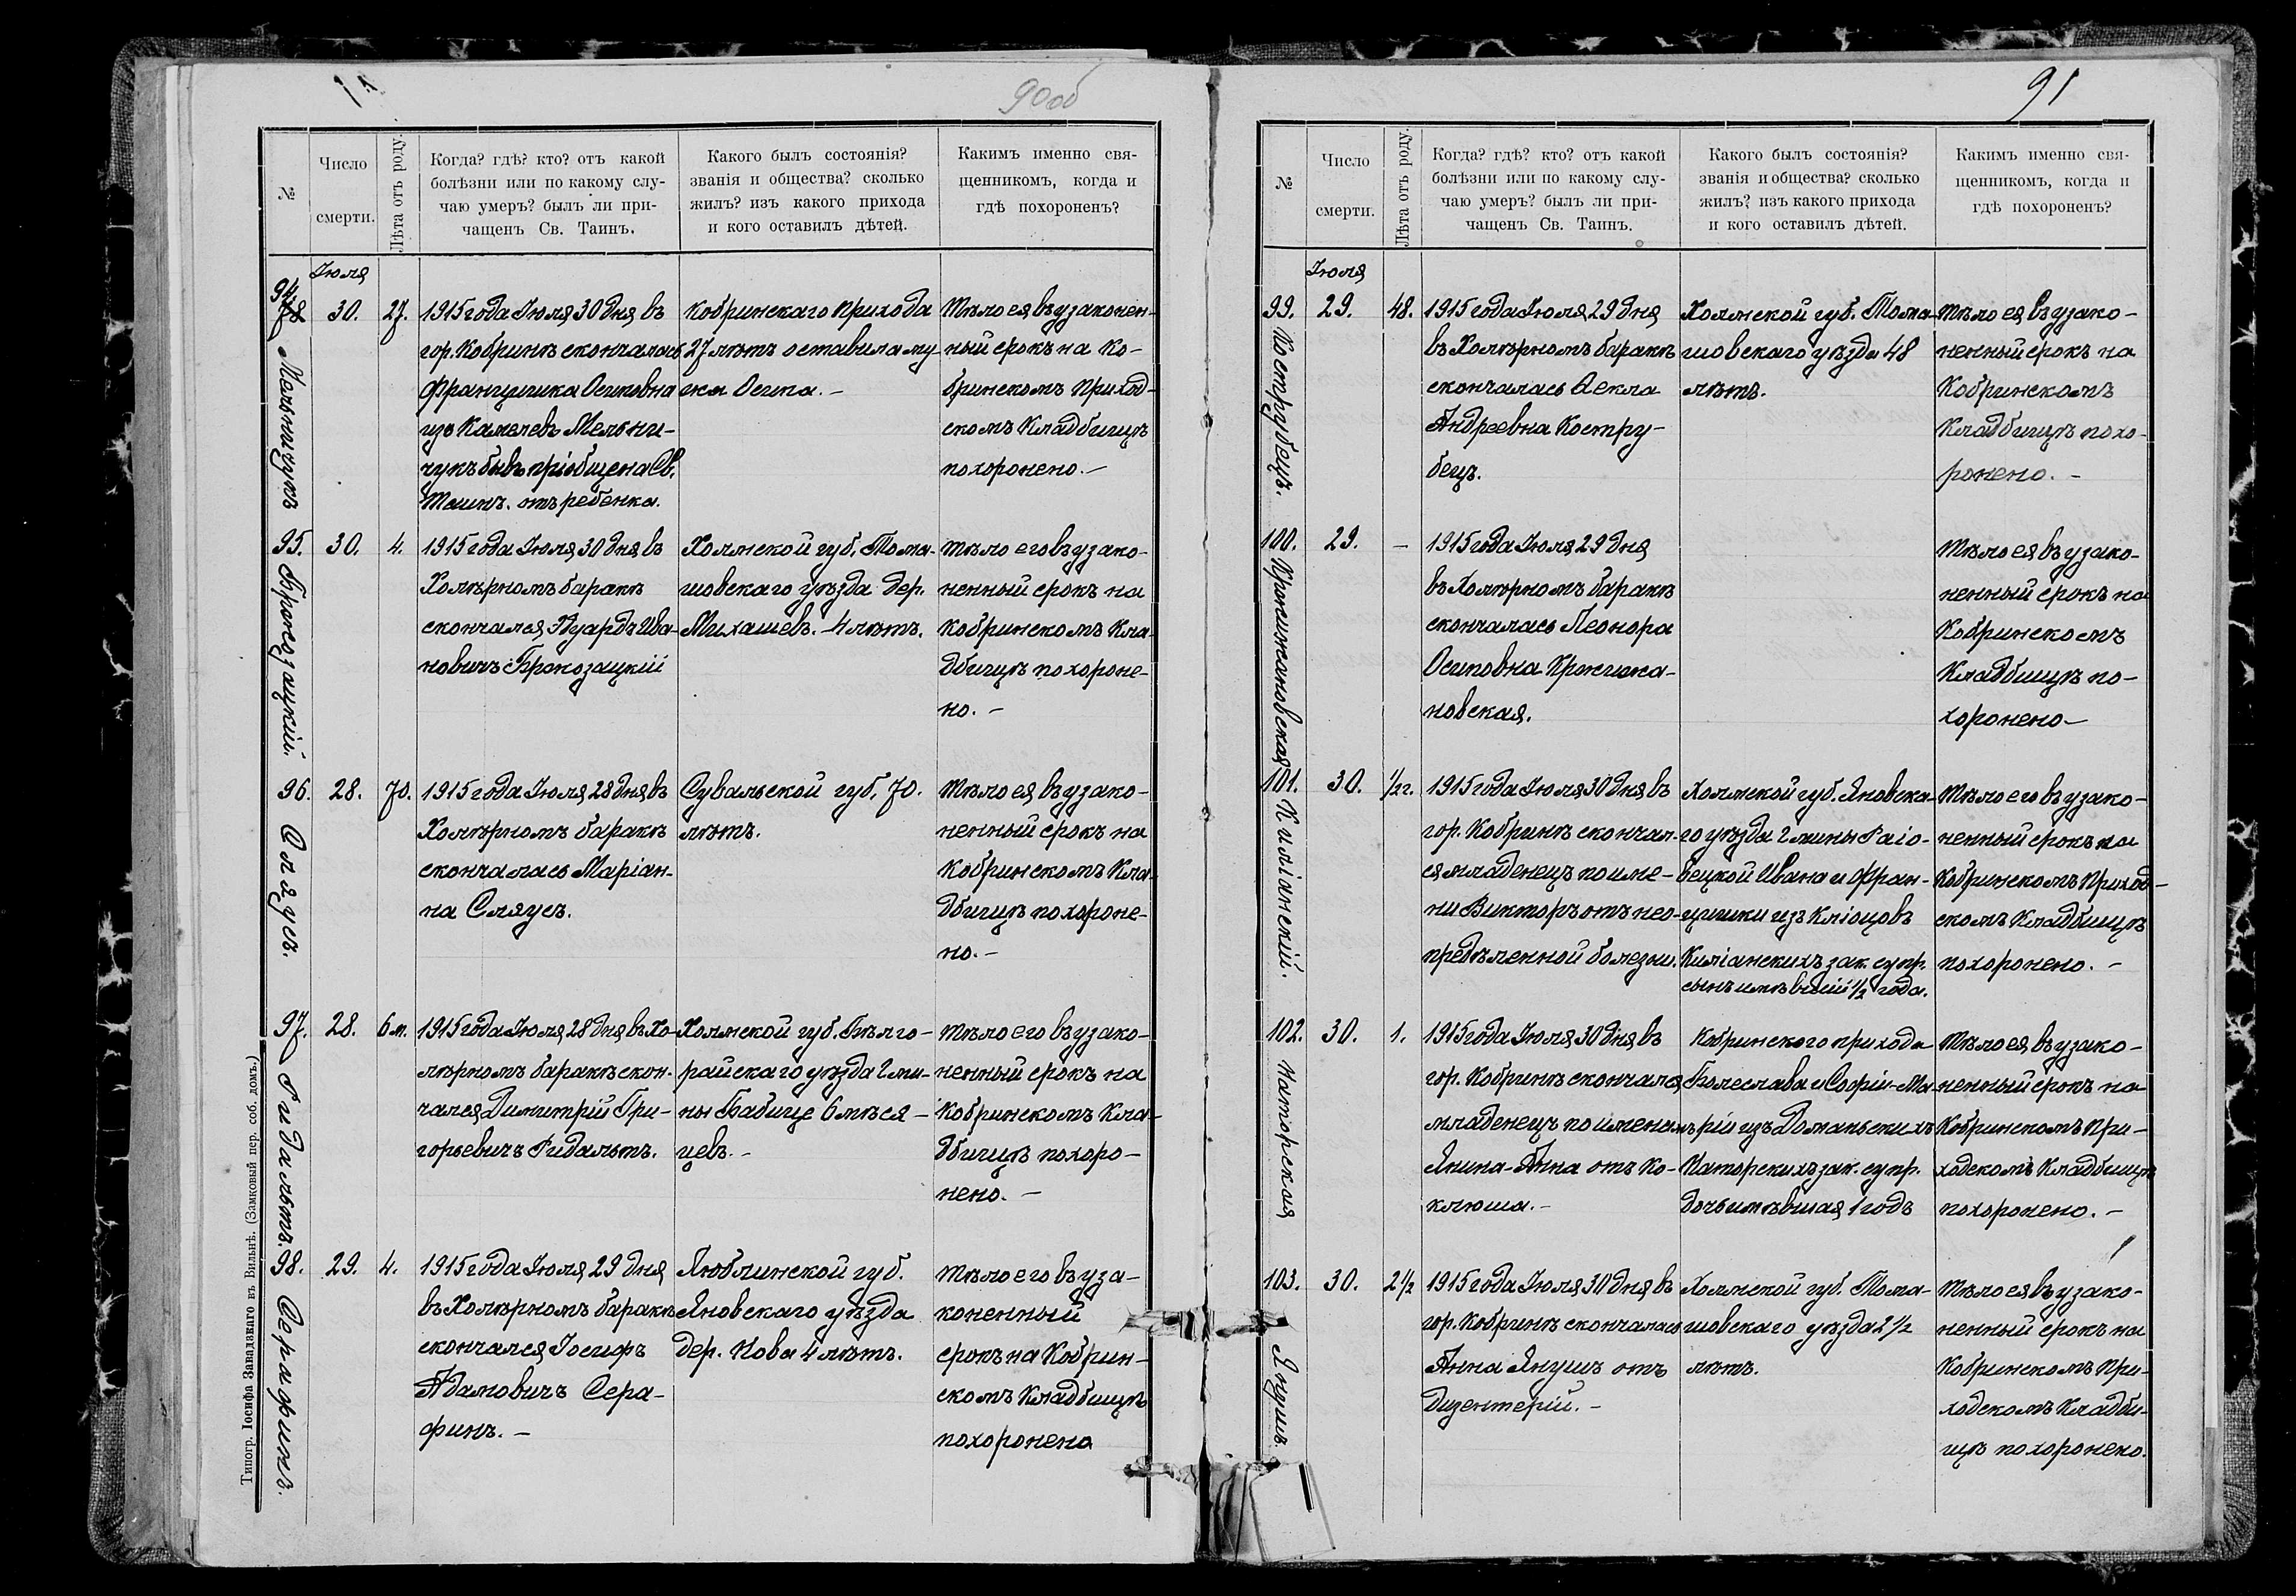 90об
№
Число
смерти.
Лѣта отъ роду.
Когда? гдѣ? кто? отъ какой
болѣзни или по какому слу-
чаю умеръ? былъ ли при-
чащенъ Св. Таинъ.
Какого былъ состоянія?
званія и общества? сколько
жилъ? изъ какого прихода
и кого оставилъ дѣтей.
Какимъ именно свя-
щенникомъ, когда и
гдѣ похороненъ?
Іюля
94
Мельничукъ
30.
27.
1915 года Іюля 30 дня въ
гор. Кобринѣ скончалась
Францишка Осиповна
изъ Камелевъ Мельни-
чукъ бывъ пріобщена Св.
Таинъ. отъ ребенка.
Кобринскаго прихода
27 лѣтъ оставила му-
жа Осипа. -
Тѣло ея въ узаконен-
ный срокъ на Ко-
бринскомъ Приход-
скомъ Кладбищѣ
похоронено. -
95.
Бронозацкій.
30.
4.
1915 года Іюля 30 дня въ
Холѣрномъ баракѣ
скончался Эдуардъ Ива-
новичъ Бронозацкій
Холмской губ. Тома-
шовскаго уѣзда дер.
Михашевъ. - 4 лѣтъ.
Тѣло его въ узако-
ненный срокъ на
Кобринскомъ Кла-
дбищѣ похороне-
но. -
96.
Слаусъ.
28.
70.
1915 года Іюля 28 дня въ
Холѣрномъ баракѣ
скончалась Маріан-
на Слаусъ.
Сувальской губ. 70.
лѣтъ.
Тѣло ея въ узако-
ненный срокъ на
Кобринскомъ Кла-
дбищѣ похороне-
но. -
97.
Гидальтъ.
28.
6 м.
1915 года Іюля 28 дня въ Хо-
лѣрномъ баракѣ скон-
чался Димитрій Гри-
горьевичъ Гидальтъ.
Холмской губ. Бѣлго-
райскаго уѣзда Гми-
ны Бабице 6 мѣся-
цевъ. -
Тѣло его въ узако-
ненный срокъ на
Кобринскомъ Кла-
дбищѣ похоро-
нено. -
98.
Серафинъ.
29.
4.
1915 года Іюля 29 дня
въ Холѣрномъ баракѣ
скончался Іосифъ
Адамовичъ Сера-
финъ. -
Люблинской губ.
Яновскаго уѣзда
дер. Нова 4 лѣтъ.
Тѣло его въ уза-
коненный
срокъ на Кобрин-
скомъ Кладбищѣ
похоронено
Типогр. Іосифа Завадзкаго въ Вильнѣ. (Замковый пер. соб. домъ.)
91
№
Число
смерти.
Лѣта отъ роду.
Когда? гдѣ? кто? отъ какой
болѣзни или по какому слу-
чаю умеръ? былъ ли при-
чащенъ Св. Таинъ.
Какого былъ состоянія?
званія и общества? сколько
жилъ? изъ какого прихода
и кого оставилъ дѣтей.
Какимъ именно свя-
щенникомъ, когда и
гдѣ похороненъ?
Іюля
99.
Кострубецъ.
29.
48.
1915 года Іюля 29 дня
въ Холѣрномъ баракѣ
скончалась Фекла
Андреевна Костру-
бецъ.
Холмской губ. Тома-
шовскаго уѣзда 48
лѣтъ.
Тѣло ея въ узако-
ненный срокъ на
Кобринскомъ
Кладбищѣ похо-
ронено. -
100.
Кржижановская
29.
-
1915 года Іюля 29 дня
въ Холѣрномъ баракѣ
скончалась Леонора
Осиповна Кржижа-
новская.
Тѣло ея въ узако-
ненный срокъ на
Кобринскомъ
Кладбищѣ по-
хоронено -
101.
Киліанскій.
30.
1/2 г.
1915 года Іюля 30 дня въ
гор. Кобринѣ скончал-
ся младенецъ по име-
ни Викторъ отъ нео-
предѣленной болезни.
Холмской губ. Яновска-
го уѣзда Гмины Раіо-
вецкой Ивана и Фран-
цишки изъ Кліоцовъ
Киліанскихъ зак. супр.
сынъ имѣвшій 1/2 года.
Тѣло его въ узако-
ненный срокъ на
Кобринскомъ Приход-
скомъ Кладбищѣ
похоронено. -
102.
Наторская
30.
1.
1915 года Іюля 30 дня въ
гор. Кобринѣ скончался
младенецъ по имени
Янина-Анна отъ ко-
клюша. -
Кобринского прихода
Болеслава и Софіи-Ма-
ріи изъ Доманьскихъ
Наторскихъ зак. супр.
дочь имѣвшая 1 годъ
Тѣло ея въ узако-
ненный срокъ на
Кобринскомъ При-
ходскомъ Кладбищѣ
похоронено. -
103.
Янушъ.
30.
2 1/2
1915 года Іюля 30 дня въ
гор. Кобринѣ скончалась
Анна Янушъ отъ
дизентеріи. -
Холмской губ. Тома-
шовскаго уѣзда 2 1/2
лѣтъ.
Тѣло ея въ узако-
ненный срокъ на
Кобринскомъ При-
ходскомъ Кладби-
щѣ похоронено.